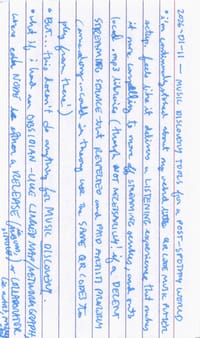 2026-01-11 — MUSIC DISCOVERY TOOLS for a POST-SPOTIFY WORLD
• I'm continually about my weird little QR CODE MUSIC PLAYER
setup. feels like it delivers a LISTENING experience that makes
it more compelling to move off STREAMING services, and onto
local .mp3 libraries (though NOT NECESSARILY! if a DECENT
STREAMING SERVICE that REVERED and PAID ARTISTS
came along, I could in theory use the SAME QR CODES to
play from there!)
• BUT... this doesn't do anything for MUSIC DISCOVERY.
• what if I had an OBSIDIAN-LIKE LINKED MAP/NETWORK GRAPH
where each NODE is either a RELEASE or COLLABORATOR